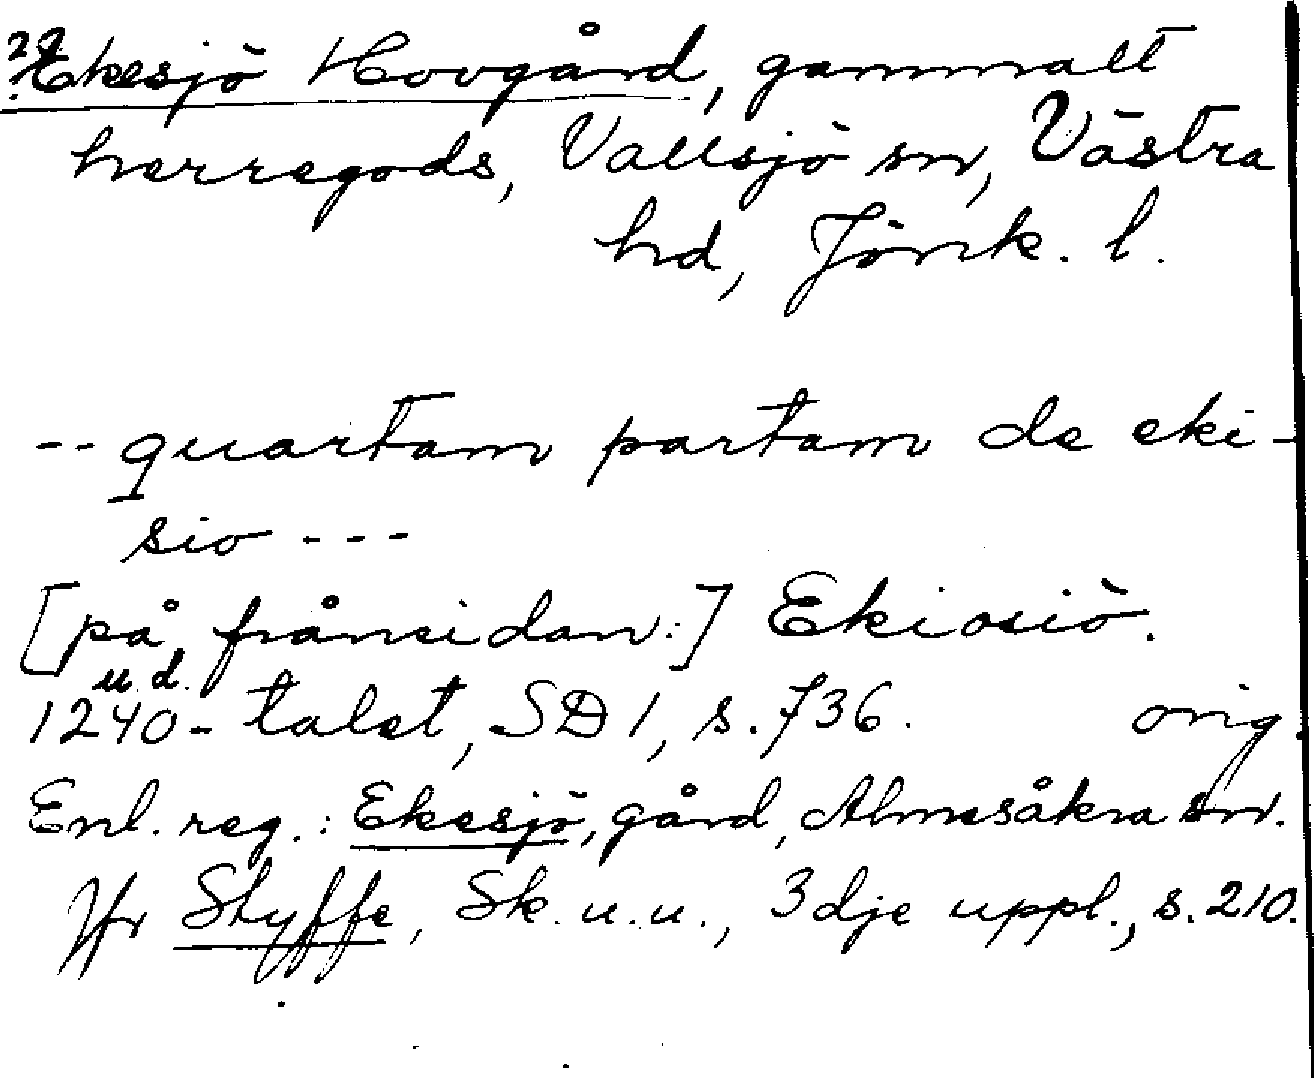 ?? Ekesjö Hovgård, gammalt
herregods, Vallsjö sn, Västra
hd, Jönk. l.
-- quartam partam de eki-
sio ---
[på frånsidan:] Ekiosiö.
u. d.
1240-talet, SD 1, s. 736. orig.
Enl. reg.: Ekesjö, gård, Almesåkra sn.
Jfr Styffe, Sk. u. u., 3dje uppl., s. 210.